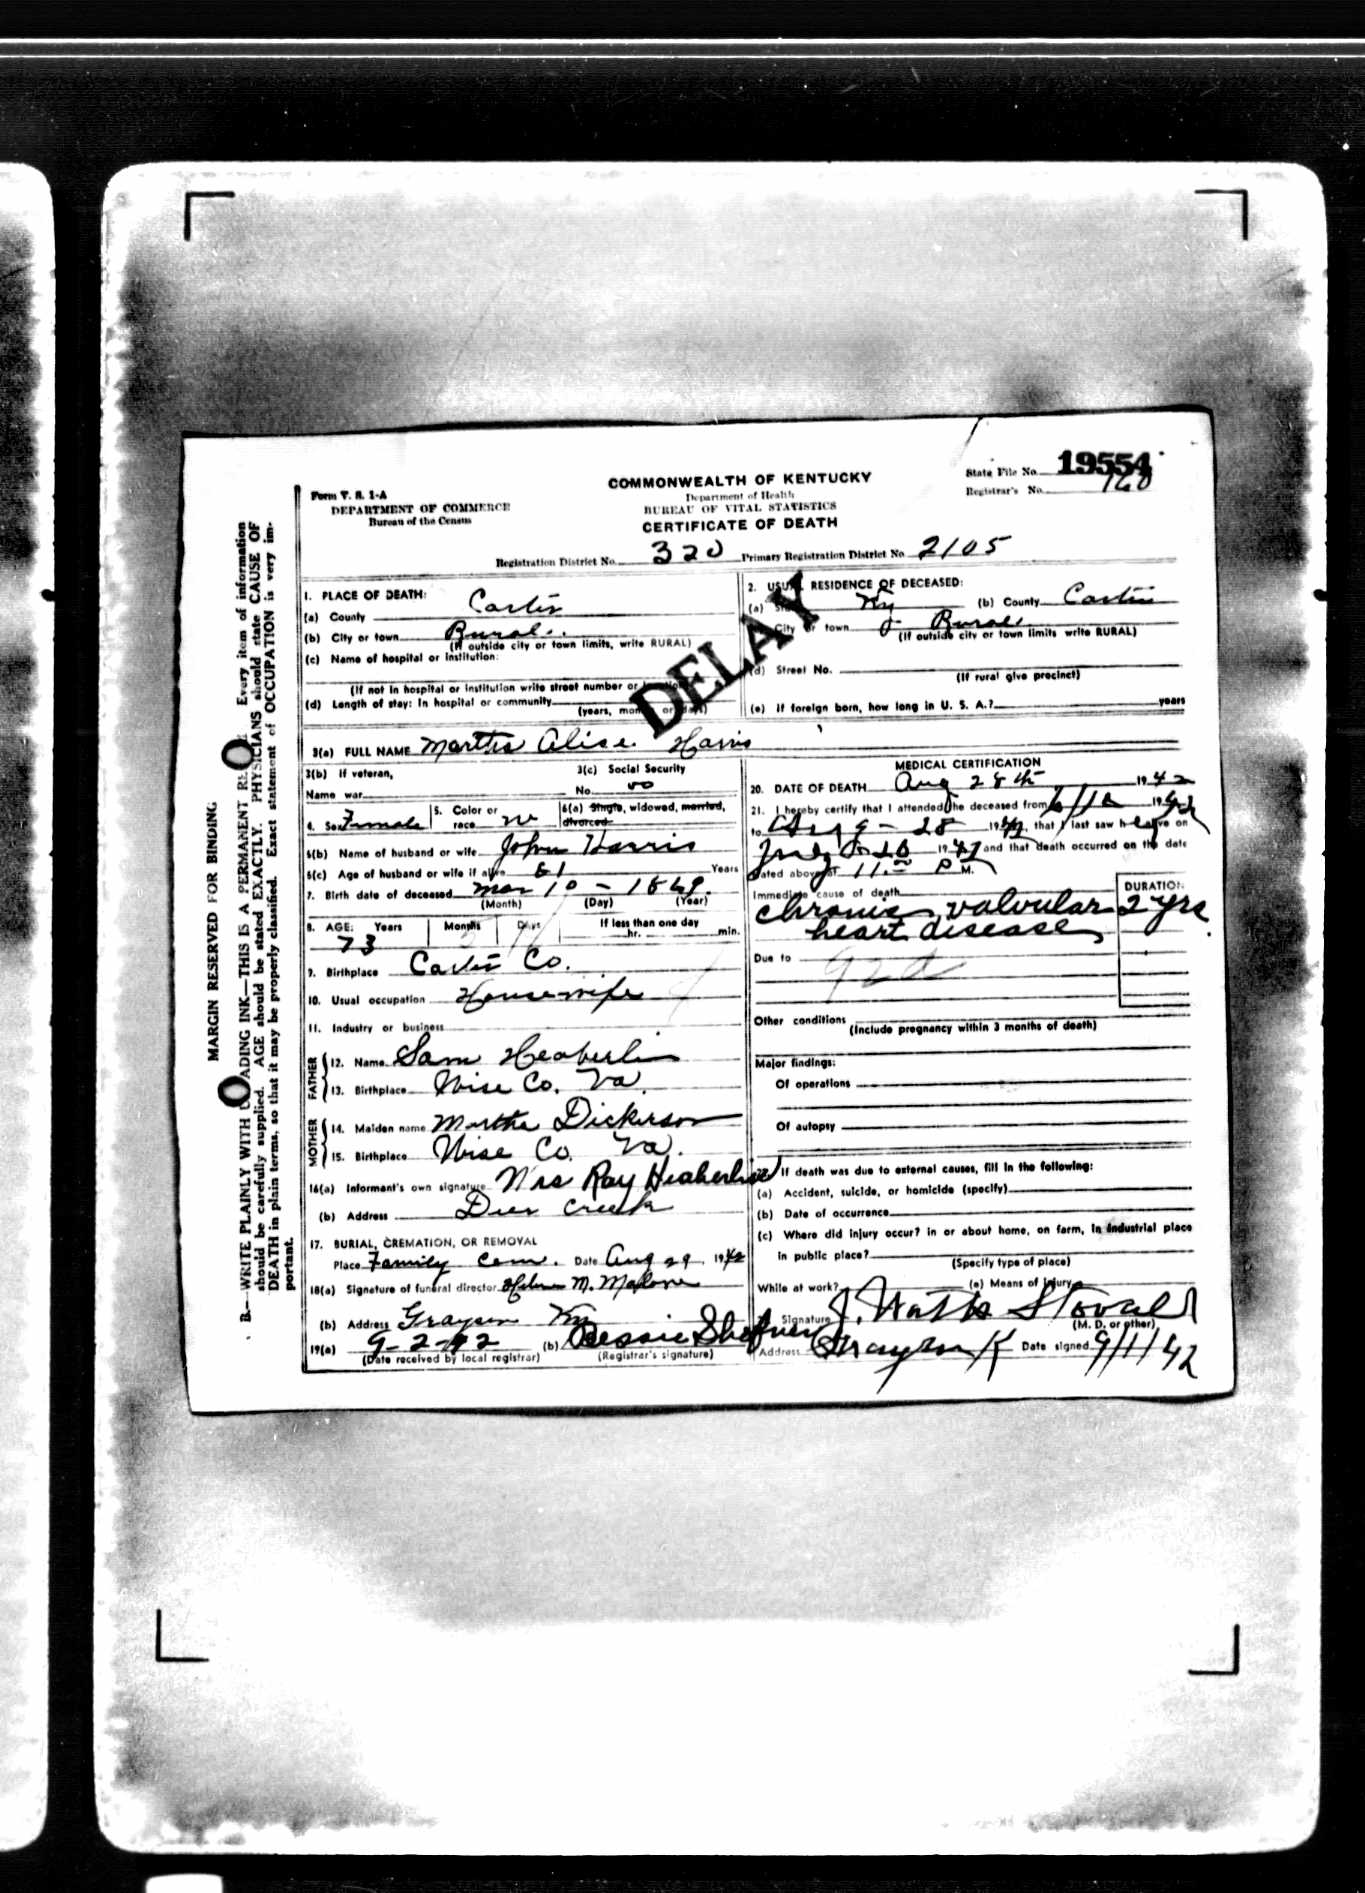 State File No. 19554
Registrar's No. 160
COMMONWEALTH OF KENTUCKY
Department of Health
BUREAU OF VITAL STATISTICS
CERTIFICATE OF DEATH
Form V. S. 1-A
DEPARTMENT OF COMMERCE
Bureau of the Census
Registration District No. 320 Primary Registration District No. 2105
DELAY
1. PLACE OF DEATH:
(a) County Carter
(b) City or town Rural
(If outside city or town limits, write RURAL)
(c) Name of hospital or institution:
(If not in hospital or institution write street number or location)
(d) Length of stay: In hospital or community
(years, months or days)
2. USUAL RESIDENCE OF DECEASED:
(a) State Ky (b) County Carter
City or town Rural
(If outside city or town limits write RURAL)
(d) Street No.
(If rural give precinct)
(e) If foreign born, how long in U. S. A.? years
3(a) FULL NAME Martha Alise Harris
3(b) If veteran,
Name war
3(c) Social Security
No. no
4. Sex Female
5. Color or
race W
6(a) Single, widowed, married,
divorced
6(b) Name of husband or wife John Harris
6(c) Age of husband or wife if alive 81 Years
7. Birth date of deceased Mar 10 - 1869.
(Month) (Day) (Year)
8. AGE: Years Months Days If less than one day
73 hr. min.
9. Birthplace Carter Co.
10. Usual occupation Housewife
11. Industry or business
FATHER
12. Name Sam Heaberlin
13. Birthplace Wise Co. Va.
MOTHER
14. Maiden name Martha Dickerson
15. Birthplace Wise Co. Va.
16(a) Informant's own signature Mrs Ray Heaberlin
(b) Address Deer Creek
17. BURIAL, CREMATION, OR REMOVAL
Place Family Cem. Date Aug 29 1942
18(a) Signature of funeral director M. Malone
(b) Address Grayson Ky
19(a) 9-2-42 (b) Bessie
(Date received by local registrar) (Registrar's signature)
MEDICAL CERTIFICATION
20. DATE OF DEATH Aug 28th 1942
21. I hereby certify that I attended the deceased from 1942
to Aug - 28 1942, that I last saw her alive on
19 and that death occurred on the date
stated above at 11.00 P M.
Immediate cause of death
DURATION
chronic valvular 2 yrs.
heart disease
Due to 92a
Other conditions
(Include pregnancy within 3 months of death)
Major findings:
Of operations
Of autopsy
22. If death was due to external causes, fill in the following:
(a) Accident, suicide, or homicide (specify)
(b) Date of occurrence
(c) Where did injury occur? in or about home, on farm, in industrial place
in public place?
(Specify type of place)
While at work? (e) Means of injury
Signature J. Watts Stovall
(M. D. or other)
Address Grayson K Date signed 9/1/42
MARGIN RESERVED FOR BINDING
B.—WRITE PLAINLY WITH UNFADING INK—THIS IS A PERMANENT RECORD. Every item of information
should be carefully supplied. AGE should be stated EXACTLY. PHYSICIANS should state CAUSE OF
DEATH in plain terms, so that it may be properly classified. Exact statement of OCCUPATION is very im-
portant.